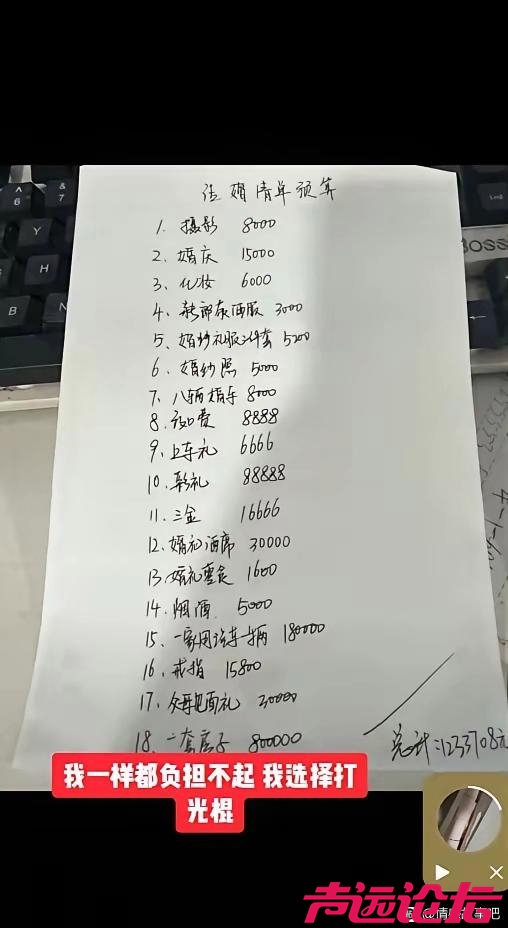 结婚清单预算
1、摄影 8000
2、婚庆 15000
3、化妆 6000
4、新郎亲西服 3000
5、婚纱礼服 件套 5200
6、婚纱照 5000
7、八辆婚车 8000
8、改口费 8888
9、上车礼 6666
10、彩礼 88888
11、三金 16666
12、婚礼酒席 30000
13、婚礼零食 1600
14、烟酒 5000
15、一家用汽车一辆 180000
16、戒指 15800
17、父母见面礼 30000
18、一套房子 800000
总计:1233708元
我一样都负担不起 我选择打
光棍
声远论坛
BOSS